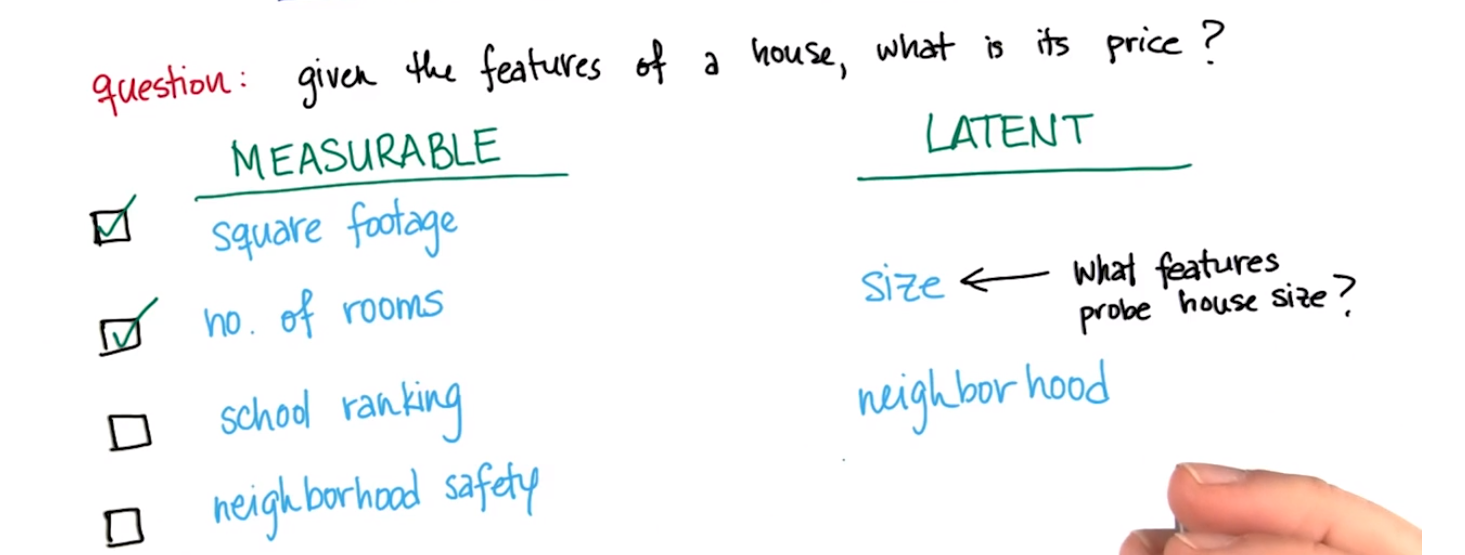 question: given the features of a house, what is its price?
MEASURABLE
LATENT
square footage
no. of rooms
school ranking
neighborhood safety
size ← what features
probe house size?
neighborhood